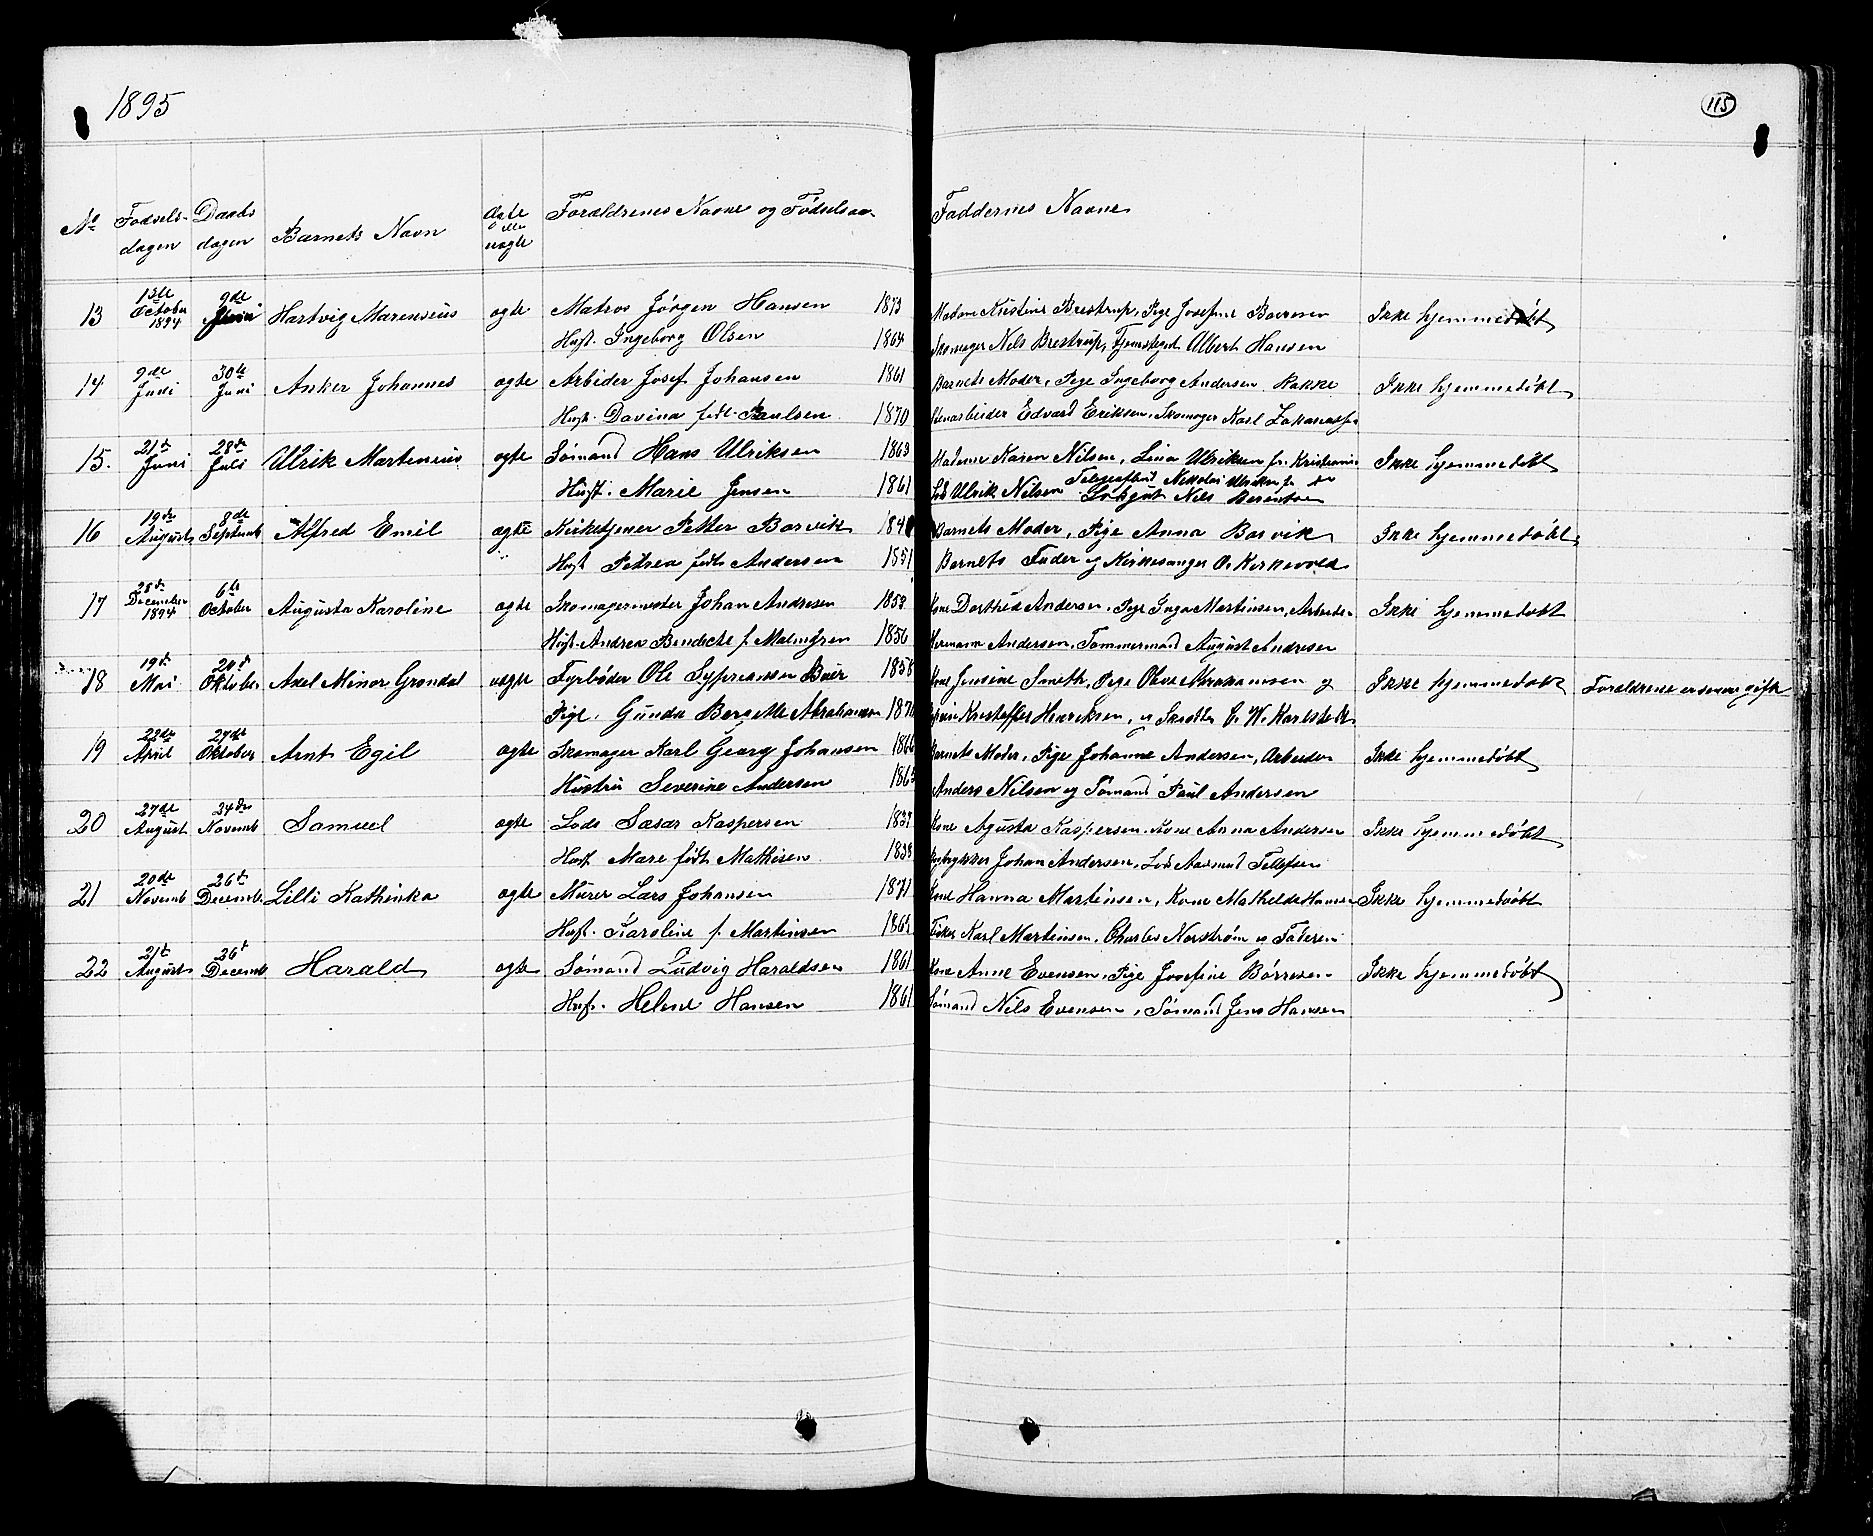 1895
115
No Fødsels- dagen Daabs dagen Barnets Navn Ægte eller uægte Forældrenes Navne og Fødselsaar Faddernes Navne
13 13de October 1894 9de Juni Hartvig Marensius ægte Matros Jørgen Hansen 1873 Madame Kristine Brestrup, Pige Josefine Ikke hjemmedøbt
Hust. Ingeborg Olsen 1864 Skomager Nils Brestrup, Albert Hansen
14 9de Juni 30te Juni Anker Johannes ægte Arbeider Josef Johansen 1861 Barnets Moder, Pige Ingeborg Andersen Bakke Ikke hjemmedøbt
Hust. Davina født Paulsen 1870 Stenarbeider Edvard Eriksen, Skomager Karl
15. 21de Juni 28de Juli Ulrik Martenius ægte Sømand Hans Ulriksen 1863 Madame Karen Nilsen, Lina Ulriksen fra Kristiania Ikke hjemmedøbt
Hust. Marie Jensen 1861 Lods Ulrik Nilsen Nikkolai Ulriksen fr do Nils Berentsen
16 19de August 8de Septemb Alfred Emil ægte Kirketjener Petter Borvik Barnets Moder, Pige Anna Borvik Ikke hjemmedøbt
Hust Petrea født Andersen 1851 Barnets Fader og Kirkesanger O. Kirkevold
17 28de December 1894 6te October Augusta Karoline ægte Skomagermester Johan Andresen 1853 Kone Dorthea Andersen, Pige Inga Martinsen, Arbeider Ikke hjemmedøbt
Hust. Andrea Bendicte f. Malmgren 1856 Hermann Andersen, Tømmermand August Andresen
18 19de Mai 20de Oktober Axel Minor Grøndal uægte Fyrbøder Ole Syprianssen Buer 1858 Kone Jensine Smeth, Pige Olava Abrahamsen og Ikke hjemmedøbt Forældrene er senere gift
Pige. Gunda Bergitte Abrahamsen Kristoffer Henriksen, og C. W. Karlstedt
19 28de April 27de Oktober Arnt Egil ægte Skomager Karl Georg Johansen 1866 Barnets Moder, Pige Johanne Andersen, Arbeider Ikke hjemmedøbt
Hustru Severine Andersen 1865 Anders Nilsen og Sømand Paul Andersen
20 27de August 24de Novemb Samuel ægte Lods Sæsar Kaspersen 1837 Kone Agusta Kaspersen, Kone Anna Andersen Ikke hjemmedøbt
Hust Mare født Mathisen 1838 Johan Andersen, Lods Aasmund Tellefsen
21 20de Novemb 26de Decemb. Lilli Kathinka ægte Murer Lars Johansen 1871 Kone Hanna Martinsen, Kone Mathilde Hansen Ikke hjemmedøbt
Hust. Karoline f. Martinsen Fisker Karl Martinsen, Charles Norstrøm og Faderen
22 21de August 26de Decemb Harald ægte Sømand Ludvig Haraldsen 1861 Kone Anne Evensen, Pige Josefine Børresen Ikke hjemmedøbt
Hust. Helene Hansen 1861 Sømand Nils Evensen, Sømand Jens Hansen